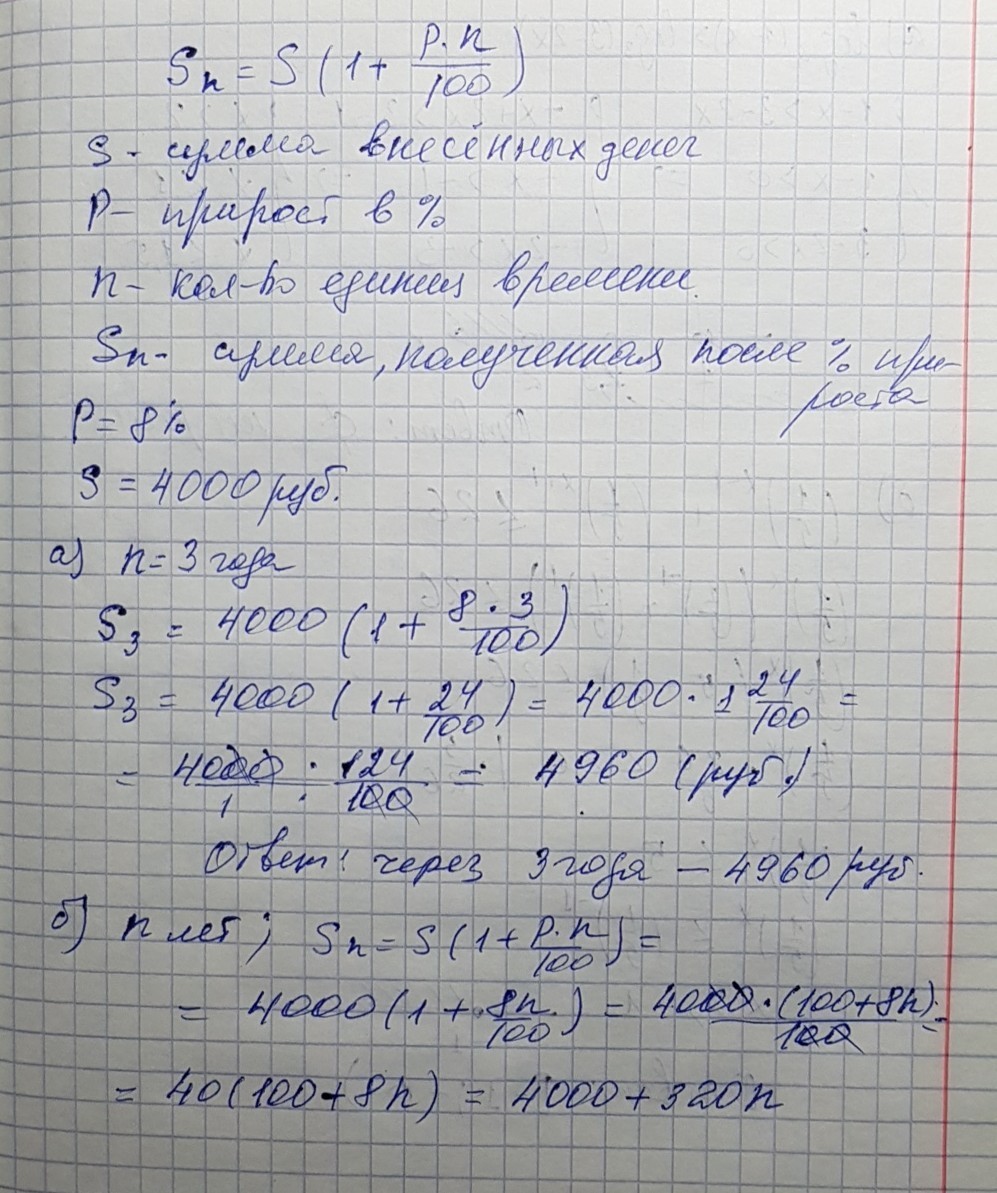 Sn = S (1 + P·n/100)
S - сумма внесённых денег
P - прирост в %
n - кол-во единиц времени.
Sn - сумма, полученная после % при-
роста
P = 8%
S = 4000 руб.
а) n = 3 года
S3 = 4000 (1 + 8·3/100)
S3 = 4000 (1 + 24/100) = 4000 · 1 24/100 =
= 4000/1 · 124/100 = 4960 (руб.)
Ответ: через 3 года – 4960 руб.
б) n лет; Sn = S (1 + P·n/100) =
= 4000 (1 + 8n/100) = 4000·(100+8n)/100 =
= 40(100+8n) = 4000+320n